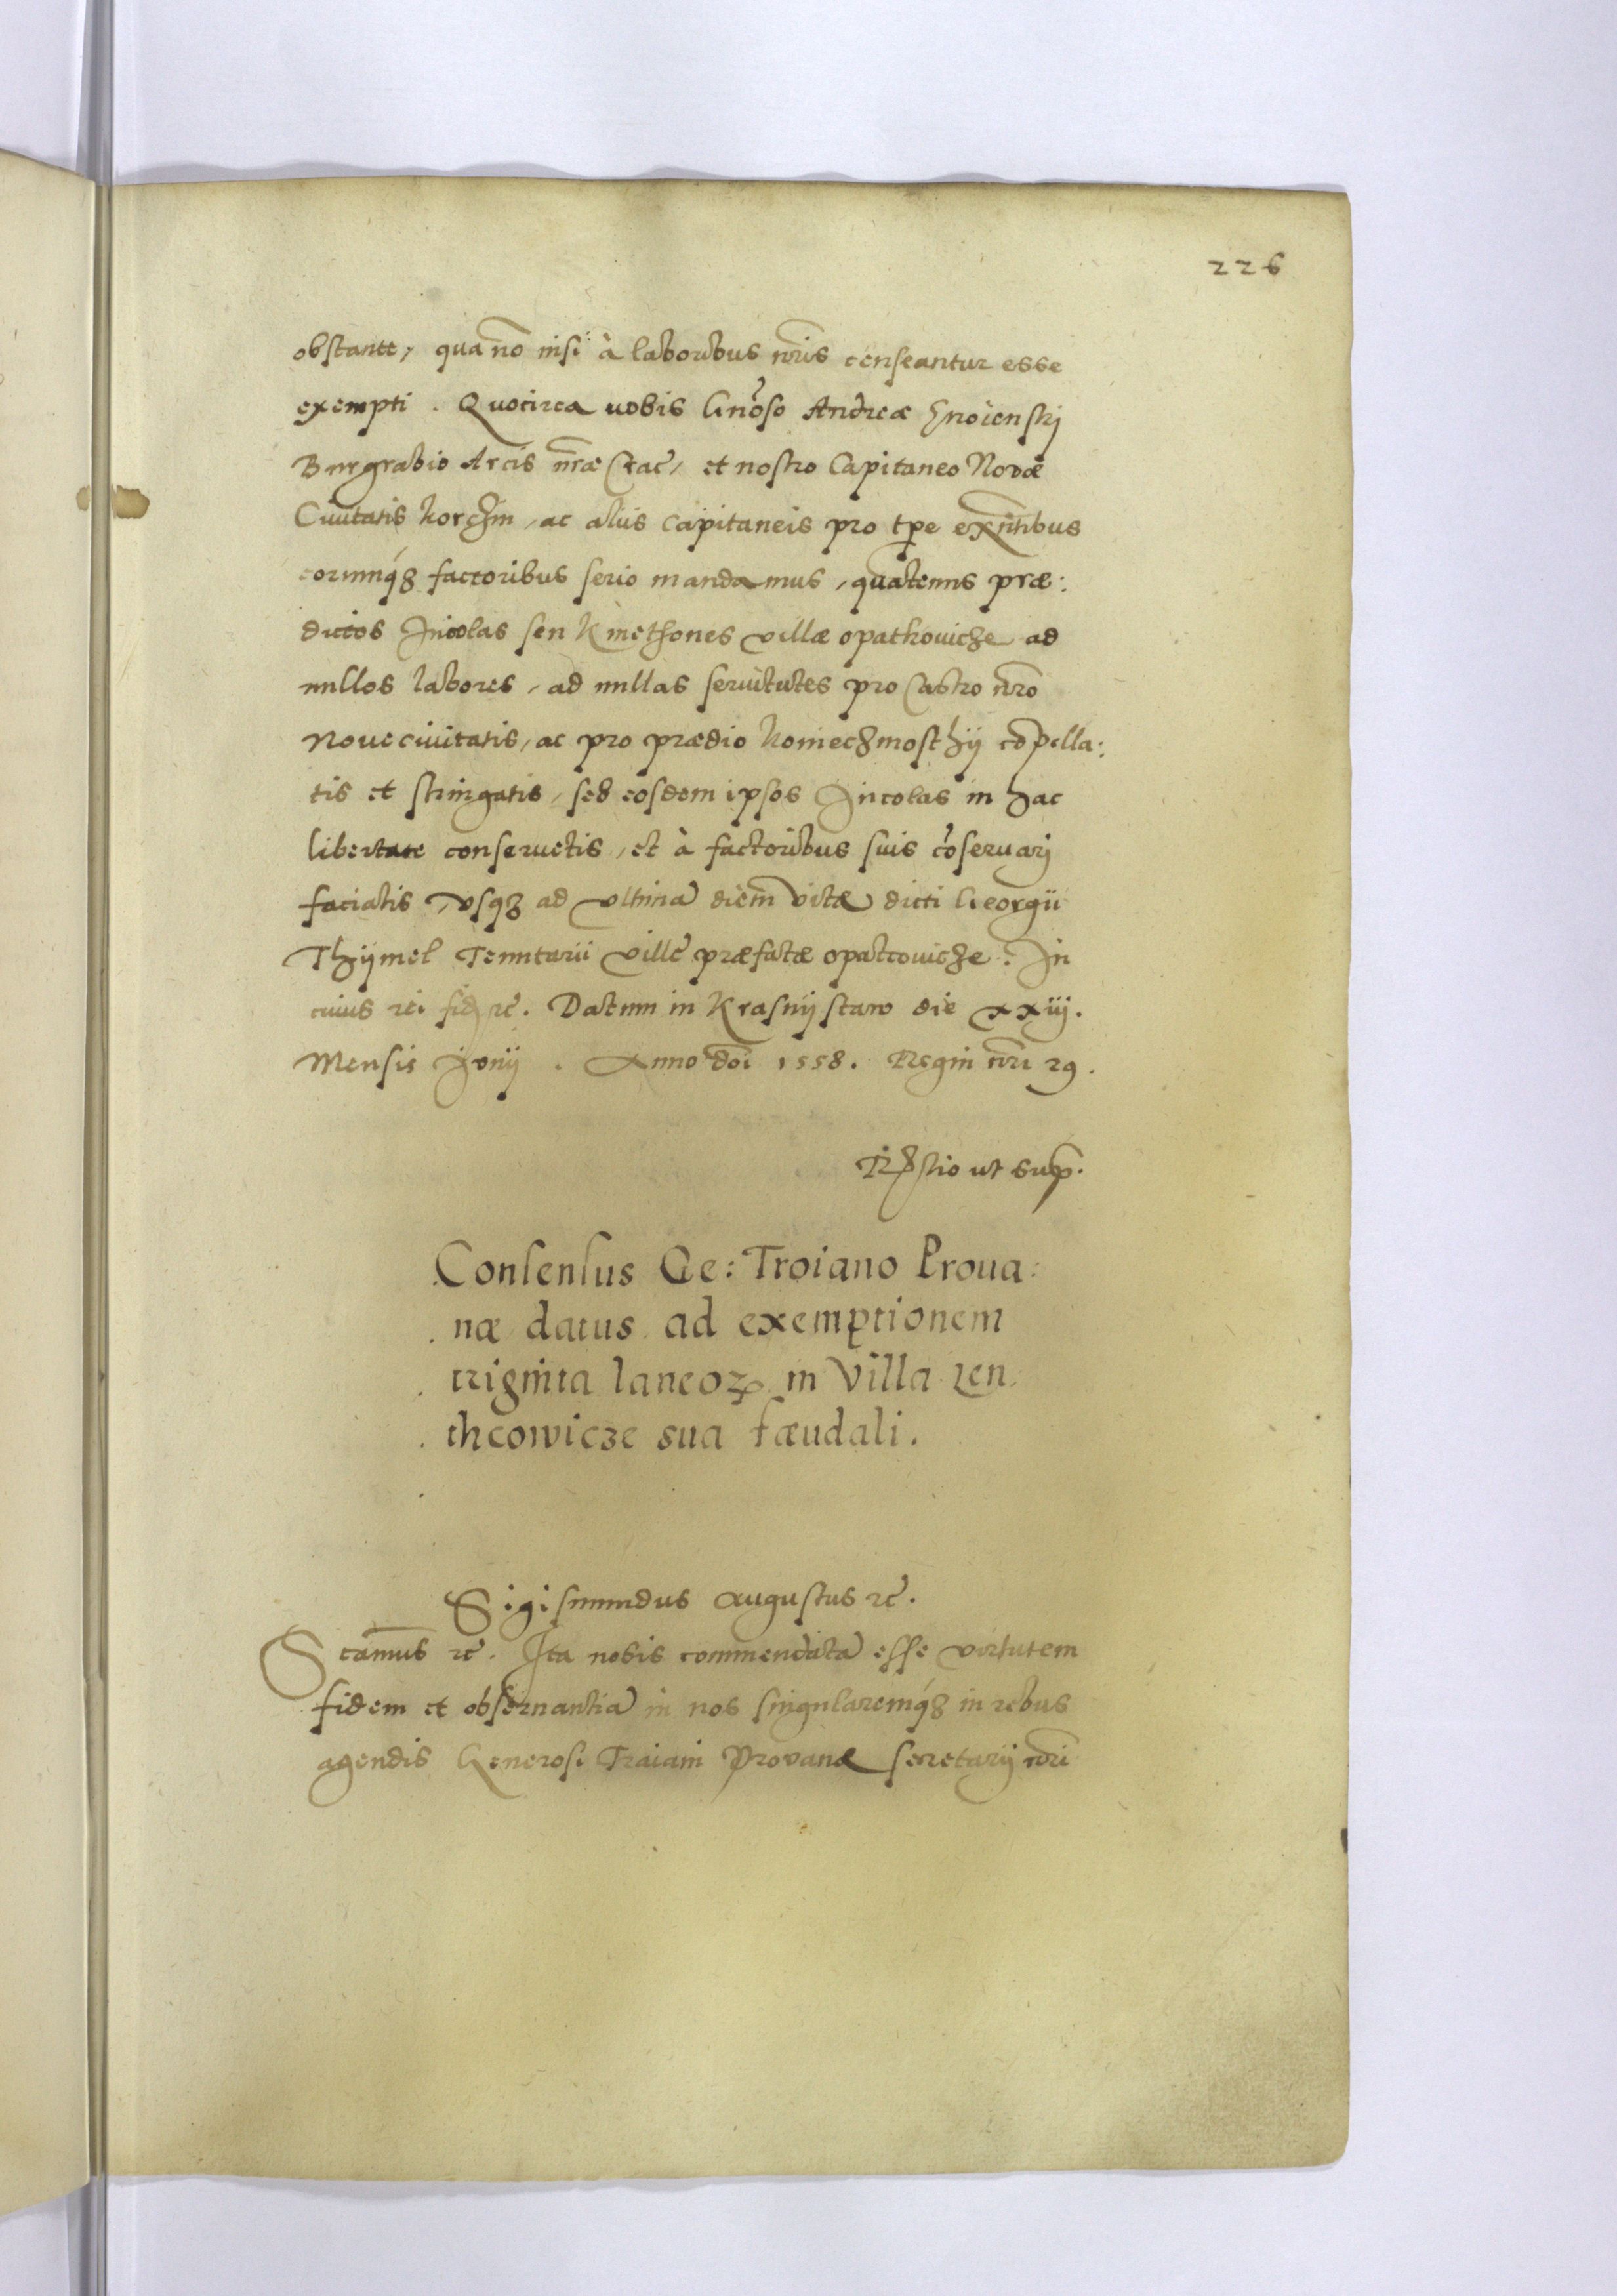 226
obstante, qua no nisi à laboribus nris censeantur esse
exempti. Quocirca uobis Gnoso Andreæ
Burgrabio Arcis nræ Crac, et nostro Capitaneo Novæ
Ciuitatis Korchin, ac aliis Capitaneis pro tpe exntibus
eorumq́ꝫ factoribus serio mandamus, quatenus præ:
dictos Incolas seu Kmethones villæ opatkouicze ad
nullos labores, ad nullas seruitutes pro Castro nro
Noue ciuitatis, ac pro prædio Koniechmosthÿ copella:
tis et stringatis, sed eosdem ipsos Incolas in hac
libertate conseruetis, et à factoribus suis coseruarj
faciatis, vsqꝫ ad vltima diem vitæ dicti Georgii
Thÿmel Tenutarii ville præfatæ opatcouicze. In
cuius rei fid ꝛc. Datum in Krasnÿstaw die xxiij.
Mensis Junij. Anno doi 1558. Regni nri 29.
Rlstio ut sup.
Consensus Ge: Troiano Proua:
næ datus ad exemptionem
triginta laneoꝝ in Villa Len
thcowicze sua fæudali.
Sigismundus Augustus ꝛc.
Scamus ꝛc. Ita nobis commendata esse virtutem
fidem et obseruantia in nos singularemq́ꝫ in rebus
agendis Generosi Traiani Provanæ secretarij nri